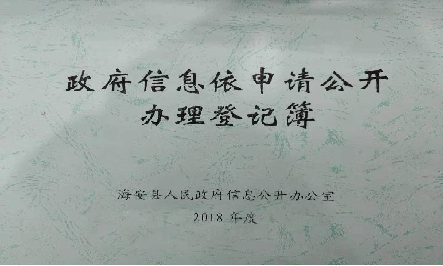 政府信息依申请公开
办理登记簿
海安县人民政府信息公开办公室
2018 年度